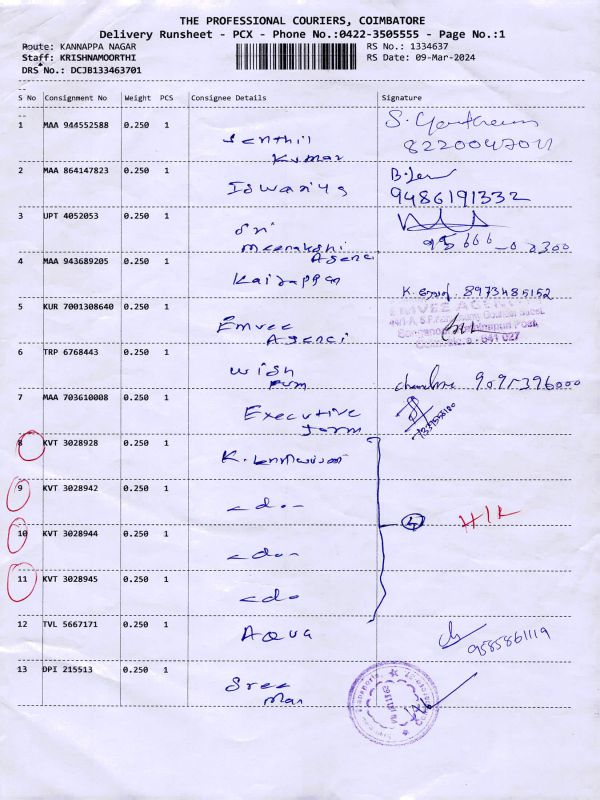 THE PROFESSIONAL COURIERS, COIMBATORE
Delivery Runsheet - PCX - Phone No.:0422-3505555 - Page No.:1
Route: KANNAPPA NAGAR RS No.: 1334637
Staff: KRISHNAMOORTHI RS Date: 09-Mar-2024
DRS No.: DCJB133463701
S No Consignment No Weight PCS Consignee Details Signature
1 MAA 944552588 0.250 1 Senthil
Kumar
2 MAA 864147823 0.250 1 Iswariya 9486191332
3 UPT 4052053 0.250 1 Sri
Meenakshi
Agenci
4 MAA 943689205 0.250 1 8973485152
5 KUR 7001308640 0.250 1 Emvee
Agenci
EMVEE AGEN
641 027
6 TRP 6768443 0.250 1 Wish
7 MAA 703610008 0.250 1 Executive
8 KVT 3028928 0.250 1 K.
9 KVT 3028942 0.250 1 -do-
10 KVT 3028944 0.250 1 -do- 4 H/R
11 KVT 3028945 0.250 1 -do
12 TVL 5667171 0.250 1 Aqua 9585861119
13 DPI 215513 0.250 1 Sree
Mar